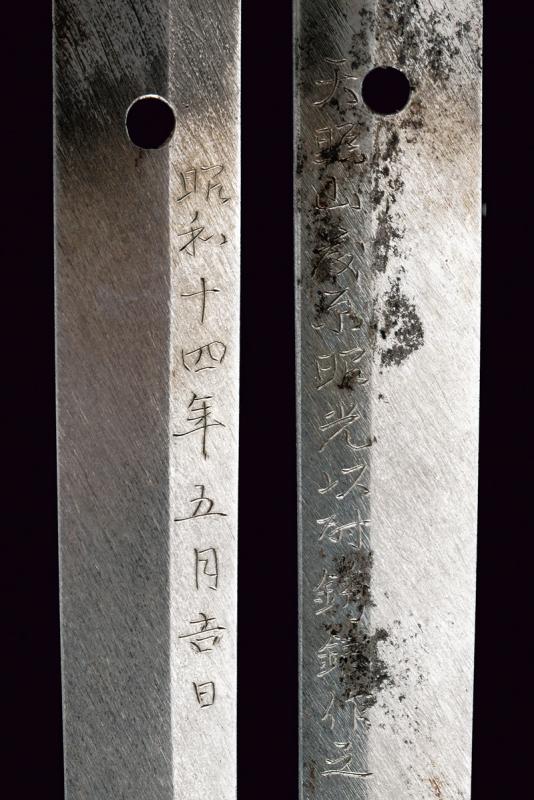 天照山 昭光以耐錆鋼作之
昭和十四年五月吉日